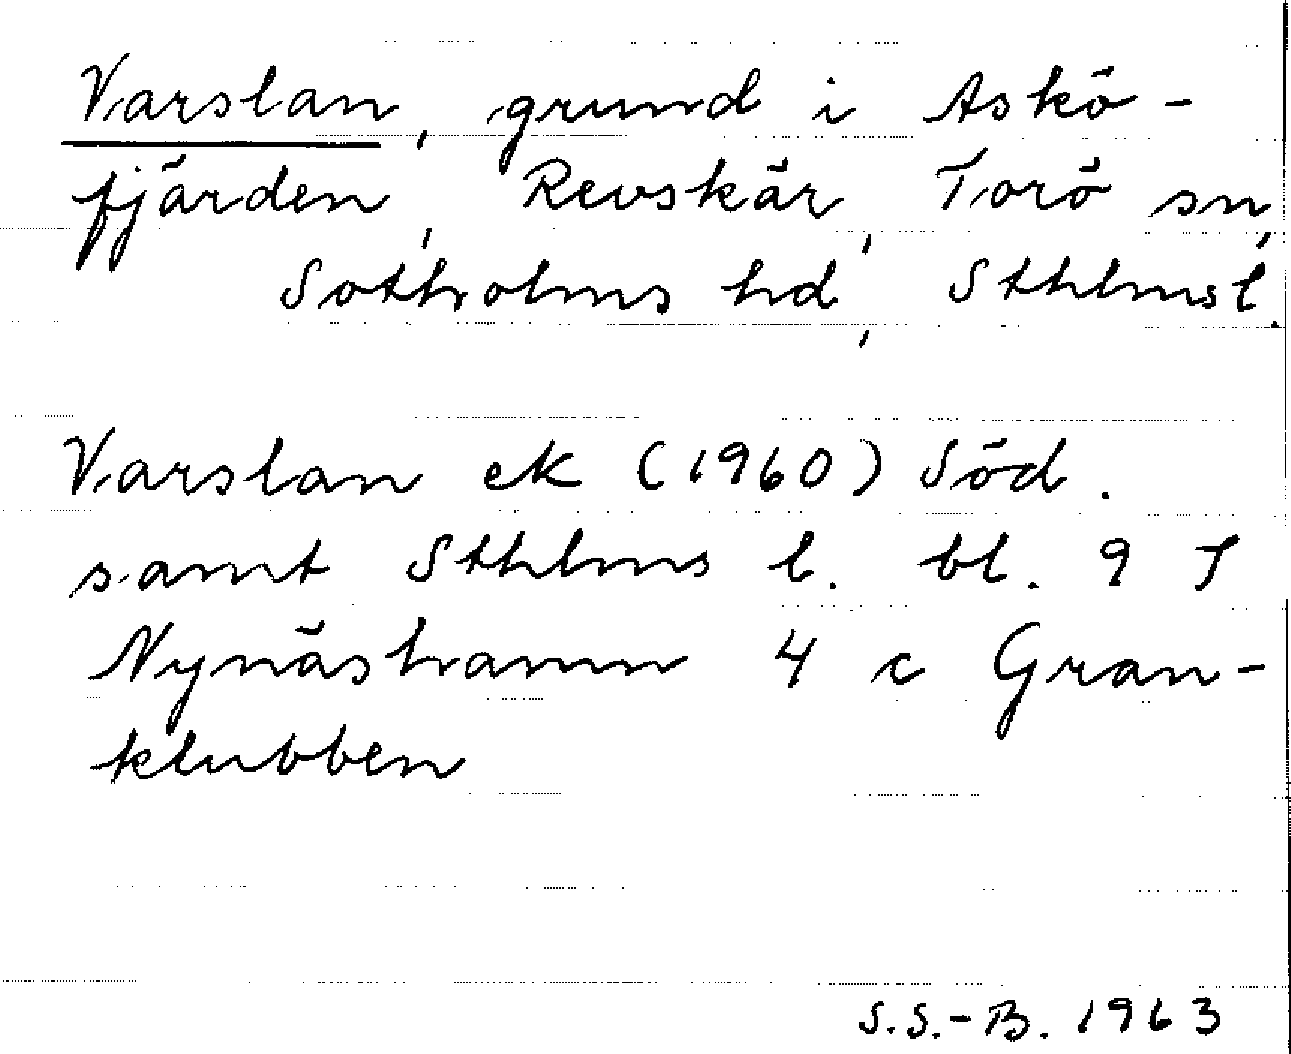 Varslan, grund i Askö-
fjärden, Revskär, Torö sn,
Sotholms hd, Sthlms l.
Varslan ek (1960) Söd.
samt Sthlms l. bl. 9 I
Nynäshamn 4 c Gran-
klubben
S.S.-B. 1963